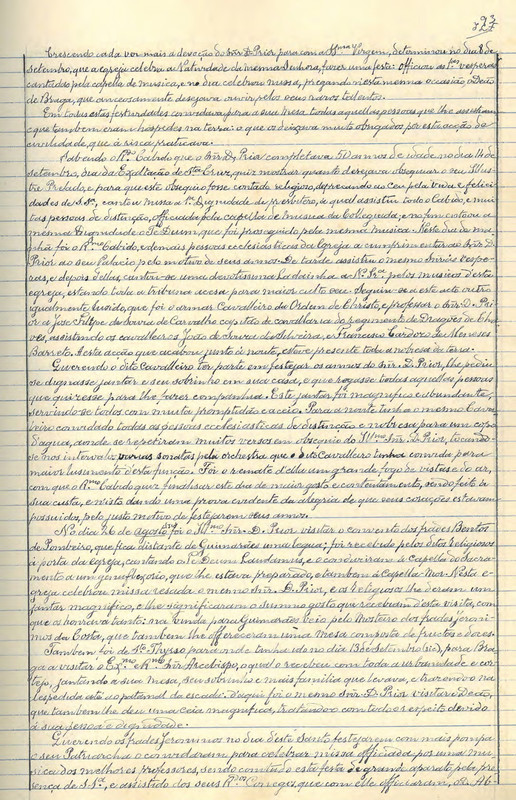 Crescendo cada vez mais a devoção do Snr. D. Prior para com a SSma Virgem, determinou no dia 8 de
setembro, que a egreja celebra a Natividade da mesma Senhora, fazer uma festa: officiou as 1as vesperas
cantadas pela capella de musica, e no dia celebrou missa, pregando n'esta mesma occasião o Deão
de Braga, que anciosamente desejava ouvir pelos seus raros talentos.
Em todas estas festividades convidava para a sua mesa todas aquellas pessoas que lhe assistiam
e que tambem eram hospedes na terra: o que os deixava muito obrigados por esta acção de
civilidade, que á risca praticava.
Sabendo o Rmo Cabido que o Snr. D. Prior completava 50 annos de idade no dia 14 de
setembro, dia da Exaltação de Sta Cruz, quiz mostrar quanto desejava obsequiar o seu Illus-
tre Prelado, e para que este obsequio fosse contado religioso, deprecando ao ceu pela vida e felici-
dades de S. Sa, cantou missa a 1a Dignidade de presbitero, á qual assistiu todo o Cabido, e mui-
tas pessoas de distinção, officiada pela capella de musica da Collegiada; e no fim entoou a
mesma Dignidade o Te Deum, que foi proseguido pela mesma musica. N'este dia de ma-
nhã foi o Rmo Cabido, e demais pessoas ecclesiasticas da Egreja a cumprimentar ao Snr. D.
Prior ao seu Palacio pelo motivo de seus annos. De tarde assistiu o mesmo Snr. ás vespe-
ras, e depois d'ellas, cantou-se uma devotissima Ladainha a Na Sra, pelos musicos d'esta
egreja, estando toda a tribuna accesa para maior culto seu. Seguiu-se a este acto outro
igualmente luzido, que foi o armar Cavalheiro da Ordem de Christo, e professar o Snr. D. Pri-
or a José Filippe de Sousa de Carvalho capitão de cavallaria do regimento de Dragões de Cha-
ves, assistindo os cavalleiros João de Sousa da Silveira, e Francisco Cardoso de Menezes
Barreto. A esta acção que acabou junto á noute, esteve presente toda a nobreza da terra.
Querendo o dito Cavalleiro ter parte em festejar os annos do Snr. D. Prior, lhe pediu
se dignasse jantar e seu sobrinho em sua casa, e que rogasse todas aquellas pessoas
que quizesse para lhe fazer companhia. Este jantar foi magnifico e abundante,
servindo-se todos com muita promptidão e aceio. Para a noute tinha o mesmo Cava-
lleiro convidado todas as pessoas ecclesiasticas de distincção e nobreza para um copo
d'agua, aonde se repetiram muitos versos em obsequio do Illmo Snr. D. Prior, tocando-
se nos intervalos varias sonatas pela orchestra que o dito Cavalleiro tinha convida para
maior luzimento d'esta função. Foi o remate d'ella um grande fogo de vistas e do ar,
com que o Rmo Cabido quiz finalisar este dia de maior gosto e contentamento, sendo feito á
sua custa, e n'isto dando uma prova evidente da alegria de que seus corações estavam
possuidos, pelo justo motivo de festejarem seus annos.
No dia 26 de agosto foi o Illmo Snr. D. Prior visitar o convento dos frades Bentos
de Pombeiro, que fica distante de Guimarães uma legua; foi recebido pelos ditos religiosos
á porta da egreja, cantando o Te Deum Laudamus, e o conduziram á Capella do Sacra-
mento a um genuflexorio, que lhe estava preparado, e tambem á Capella-Mór. N'esta e-
greja celebrou missa resada o mesmo Snr. D. Prior, e os religiosos lhe deram um
jantar magnifico, e lhe significaram o summo gosto que recebiam d'esta visita, com
que os honrava tanto: na vinda para Guimarães veio pelo Mosteiro dos frades Jeroni-
mos da Costa, que tambem lhe offereceram uma mesa composta de fructos e doces.
Tambem foi de Sto Thyrso para onde tinha ido no dia 13 de Setembro (sic), para Bra-
ga a visitar o Exmo e Rmo Snr. Arcebispo, o qual o recebeu com toda a urbanidade e cor-
tejo, jantando á sua mesa, seu sobrinho e mais familia que levava, e trazendo-o na
despedida até ao patamal da escada. D'aqui foi o mesmo Snr. D. Prior visitar o Deão,
que tambem lhe deu uma ceia magnifica, tratando-o com todo o respeito devido
á sua pessoa e dignidade.
Querendo os frades Jeronimos no dia d'este Santo festejarem com mais pompa
o seu Patriarcha o convidaram para celebrar missa officiada por uma mu-
sica dos melhores professores, sendo constituido esta festa de grande aparato pela pre-
sença de S. Sa, e assistido dos seus Rmos Conegos, que com elle officiaram, o D. Ab-